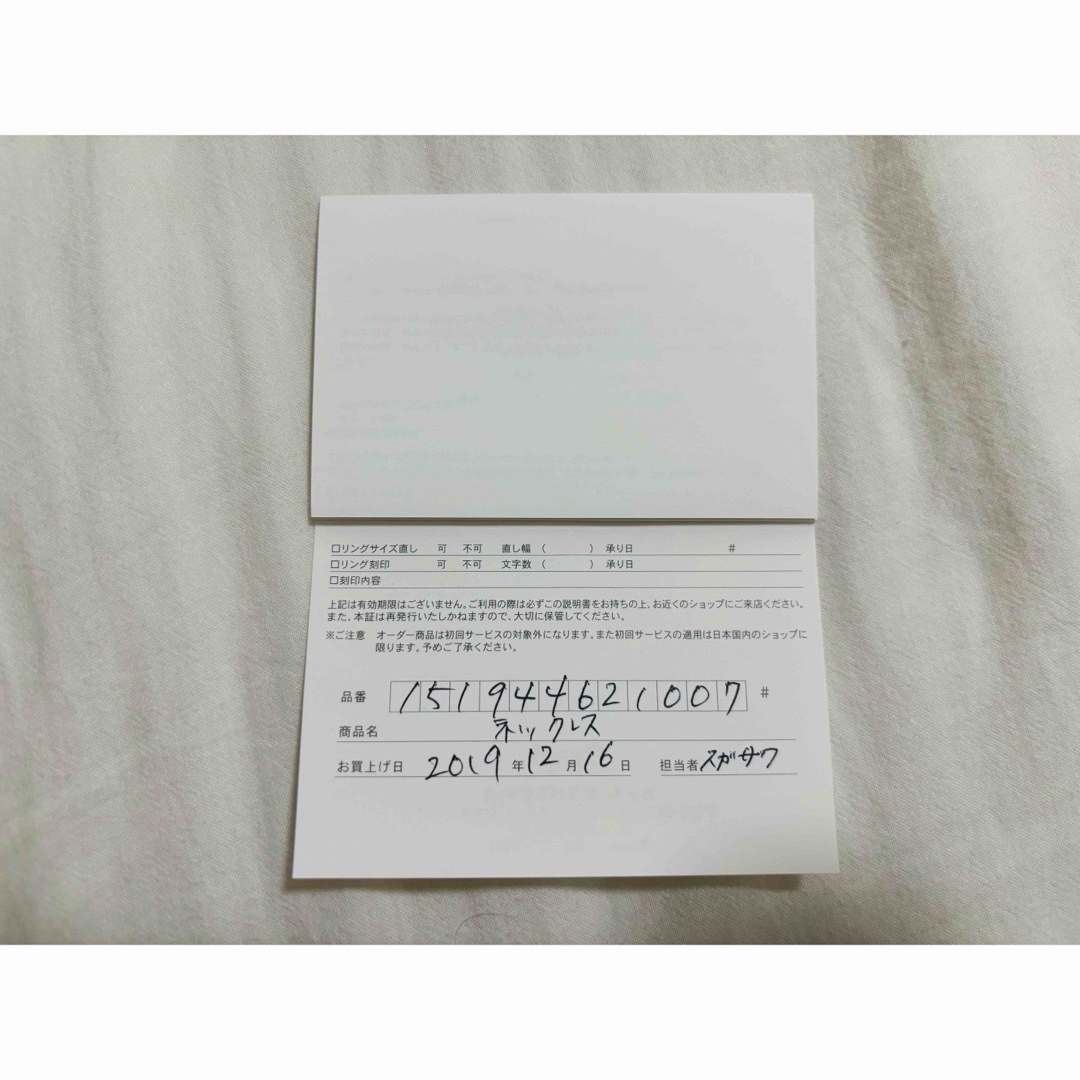 □リングサイズ直し 可 不可 直し幅 ( ) 承り日 #
□リング刻印 可 不可 文字数 ( ) 承り日
□刻印内容
上記は有効期限はございません。ご利用の際は必ずこの説明書をお持ちの上、お近くのショップにご来店ください。
また、本証は再発行いたしかねますので、大切に保管してください。
※ご注意 オーダー商品は初回サービスの対象外になります。また初回サービスの適用は日本国内のショップに
限ります。予めご了承ください。
品番 151944621007 #
商品名 ネックレス
お買上げ日 2019年12月16日 担当者 スガサワ